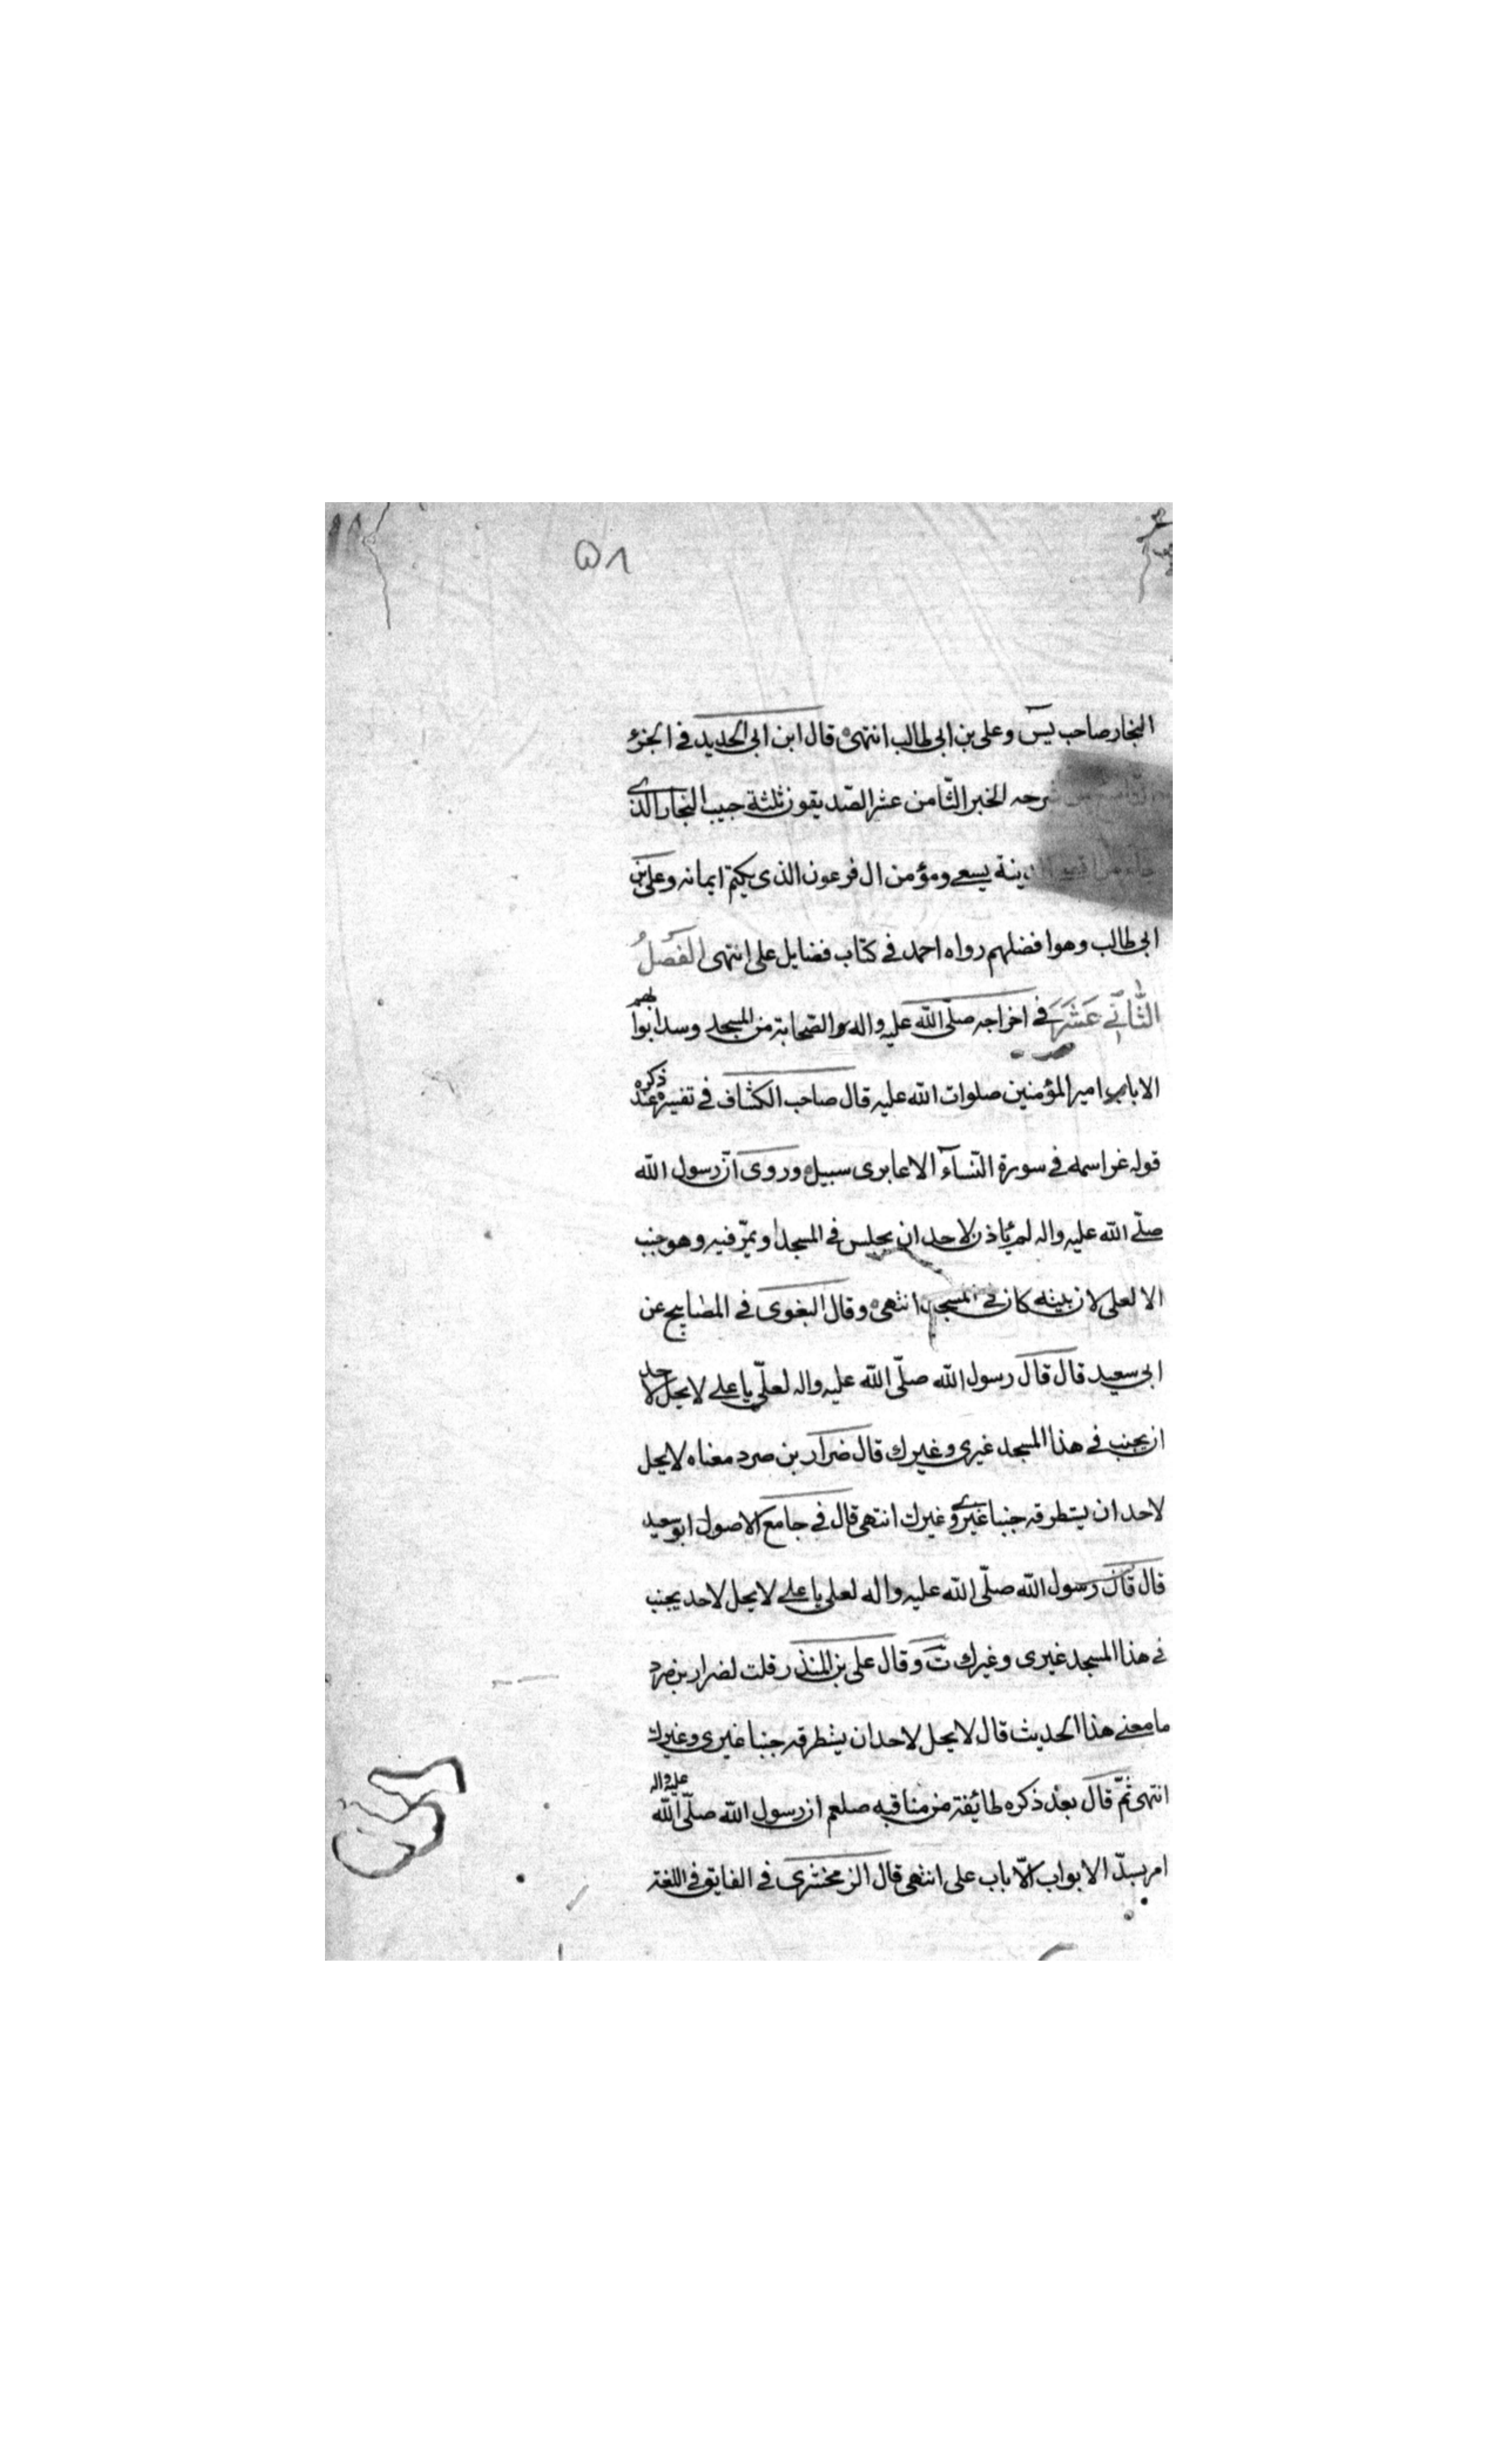 ۵۸
النجار صاحب يس وعلى بن ابى طالب انتهى قال ابن ابى الحديد فى الجزؤ
شرحه الخبر الثّامن عشر الصّديقون ثلثة حبيب النجار الذى
يسعى ومؤمن ال فرعون الذى يكتم ايمانه وعلى بن
ابى طالب وهو افضلهم رواه احمد فى كتاب فضايل على انتهى الفَصْلُ
الثّانى عَشَرَ فى اخراجه صلّى الله عليه واله الصّحابة من المسجد وسد ابوابهم
الا باب امير المؤمنين صلوات الله عليه قال صاحب الكشاف فى تفسيره عند ذكره
قوله عز اسمه فى سورة النّسآء الا عابرى سبيل وروى انّ رسول الله
صلّى الله عليه واله لم ياذن لاحد ان يجلس فى المسجد او يمرّ فيه وهو جنب
الا لعلى لان بيته كان فى المسجد انتهى وقال البغوى فى المصابيح عن
ابى سعيد قال قال رسول الله صلّى الله عليه واله لعلّى يا على لا يحل لاحد
ان يجنب فى هذا المسجد غيرى وغيرك قال ضرار بن صرد معناه لا يحل
لاحد ان يستطرقه جنبا غيرى وغيرك انتهى قال فى جامع الاصول ابو سعيد
قال قال رسول الله صلّى الله عليه واله لعلى يا على لا يحل لاحد يجنب
فى هذا المسجد غيرى وغيرك ت وقال على بن المنذر قلت لضرار بن صرد
ما معنى هذا الحديث قال لا يحل لاحد ان يستطرقه جنبا غيرى وغيرك
انتهى ثمّ قال بعد ذكره طائفة من مناقبه صلعم ان رسول الله صلّى الله عليه واله
امر بسدّ الابواب الّا باب على انتهى قال الزمخشرى فى الفايق فى اللغة